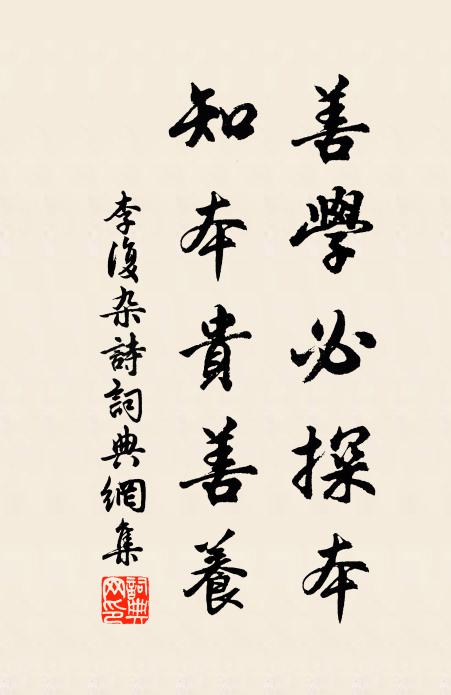 善學必探本
知本貴善養
李復杂詩詞典網集
詞典網印